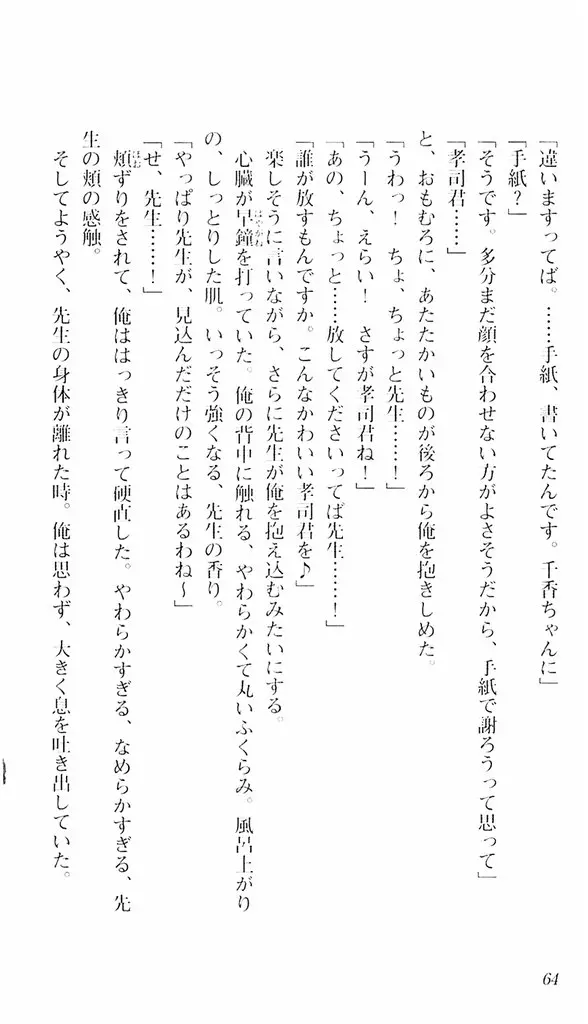 「違いますってば。……手紙、書いてたんです。千香ちゃんに」
「手紙？」
「そうです。多分まだ顔を合わせない方がよさそうだから、手紙で謝ろうって思って」
「孝司君……」
と、おもむろに、あたたかいものが後ろから俺を抱きしめた。
「うわっ！　ちょ、ちょっと先生……！」
「うーん、えらい！　さすが孝司君ね！」
「あの、ちょっと……放してくださいってば先生……！」
「誰が放すもんですか。こんなかわいい孝司君を♪」
楽しそうに言いながら、さらに先生が俺を抱え込むみたいにする。
心臓が早鐘を打っていた。俺の背中に触れる、やわらかくて丸いふくらみ。風呂上がり
はやがね
の、しっとりした肌。いっそう強くなる、先生の香り。
「やっぱり先生が、見込んだだけのことはあるわね～」
「せ、先生……！」
頬ずりをされて、俺ははっきり言って硬直した。やわらかすぎる、なめらかすぎる、先
ほお
生の頬の感触。
そしてようやく、先生の身体が離れた時。俺は思わず、大きく息を吐き出していた。
64